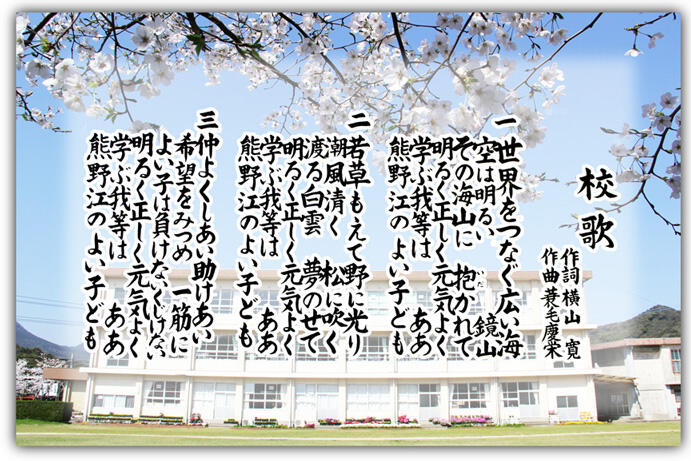 校歌
作詞 横山 寛
作曲 蓑毛慶栄
一 世界をつなぐ広い海
空は明るい 鏡山
その海山に 抱かれて
いだ
明るく正しく元気よく
学ぶ我等は ああ
熊野江のよい子ども
二 若草もえて野に光り
潮風清く 松に吹く
渡る白雲 夢のせて
明るく正しく元気よく
学ぶ我等は ああ
熊野江のよい子ども
三 仲よくしあい助けあい
希望をみつめ 一筋に
よい子は負けないくじけない
明るく正しく元気よく
学ぶ我等は ああ
熊野江のよい子ども